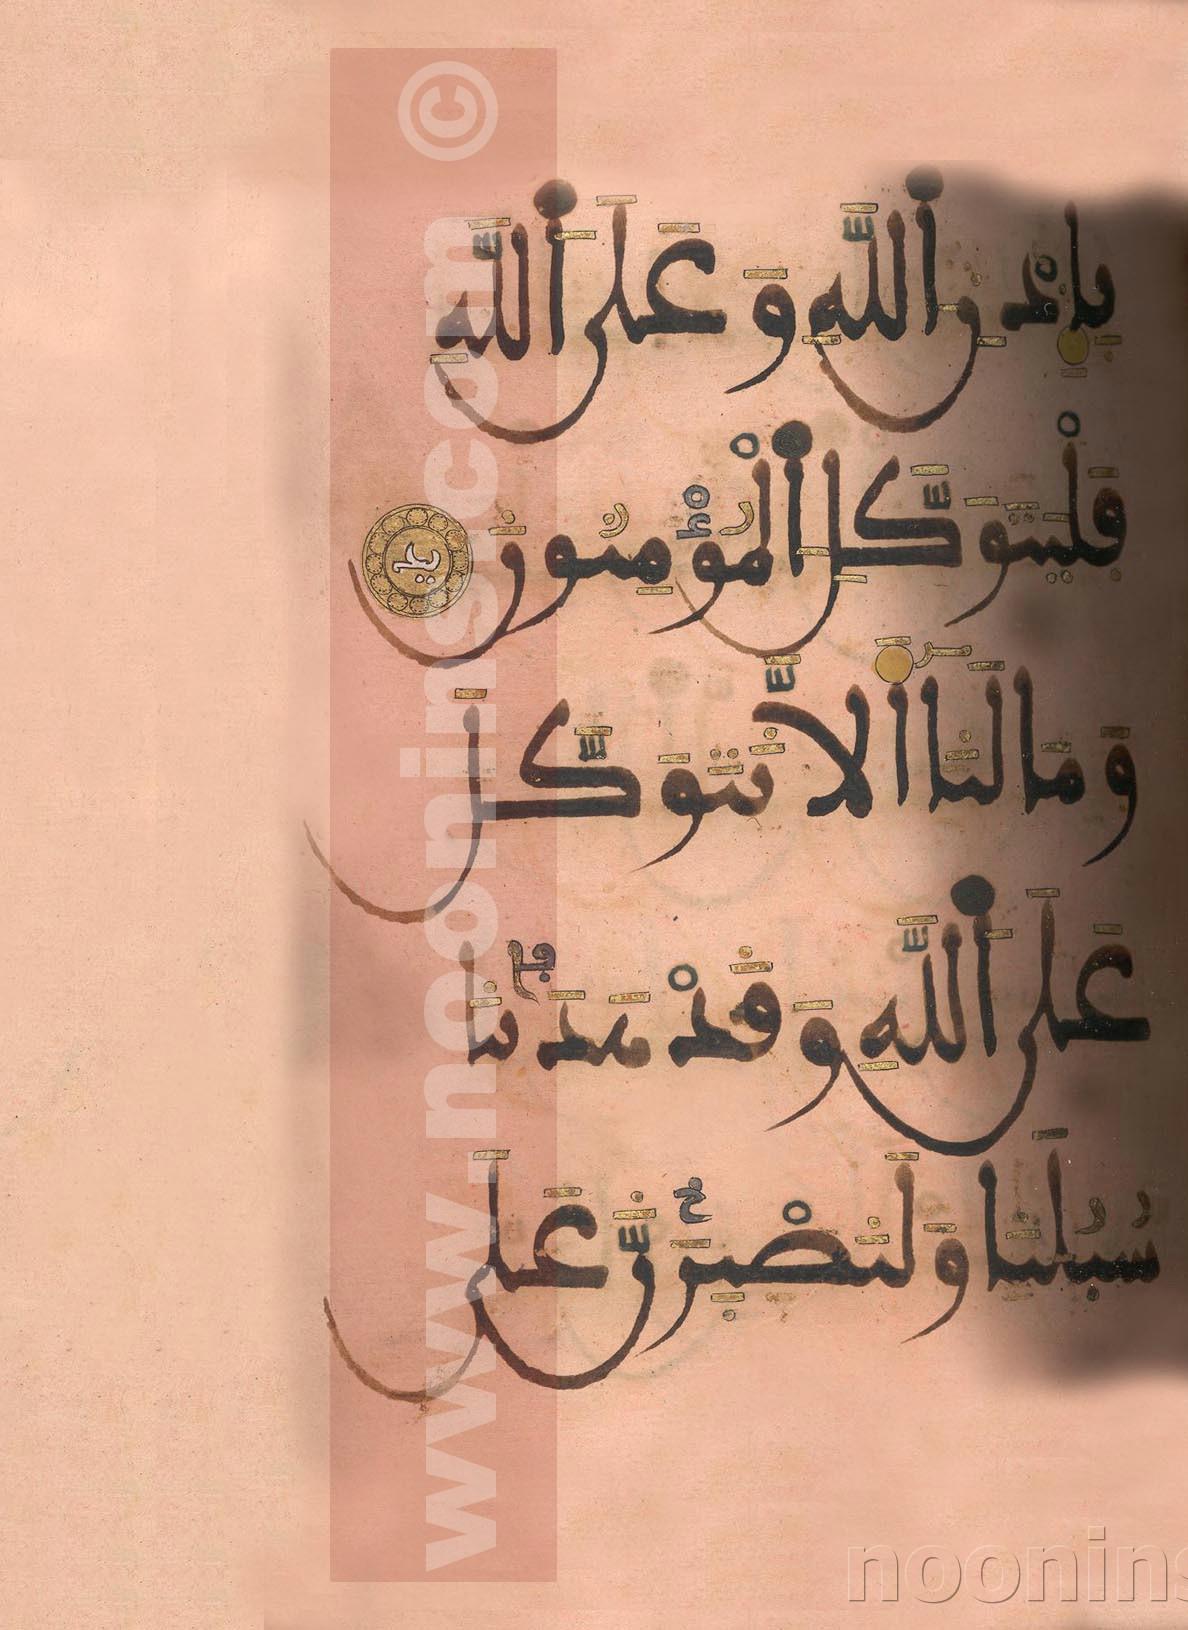 بِإِذْنِ اِ۬للَّهِ وَعَلَى اَ۬للَّهِ
فَلْيَتَوَكَّلِ اِ۬لْمُؤْمِنُونَ
وَمَا لَنَا أَلَّا نَتَوَكَّلَ
عَلَى اَ۬للَّهِ وَقَدْ هَدَىٰنَا
سُبُلَنَا وَلَنَصْبِرَنَّ عَلَىٰ
www.noonins.com ©
noonins